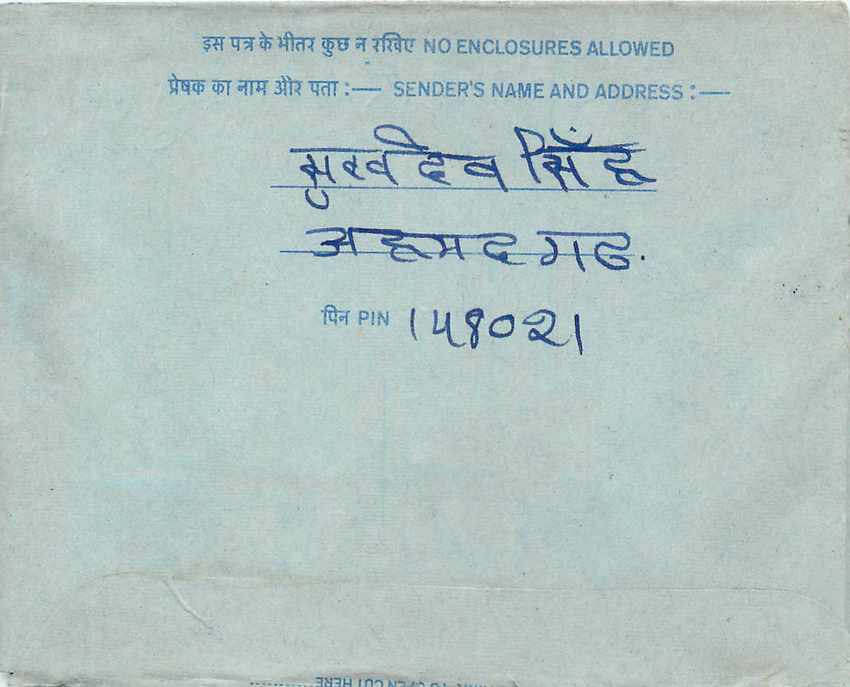 इस पत्र के भीतर कुछ न रखिए NO ENCLOSURES ALLOWED
प्रेषक का नाम और पता :— SENDER'S NAME AND ADDRESS :—
सुखदेव सिँह
अहमदगढ.
पिन PIN 148021
OPEN CUT HERE